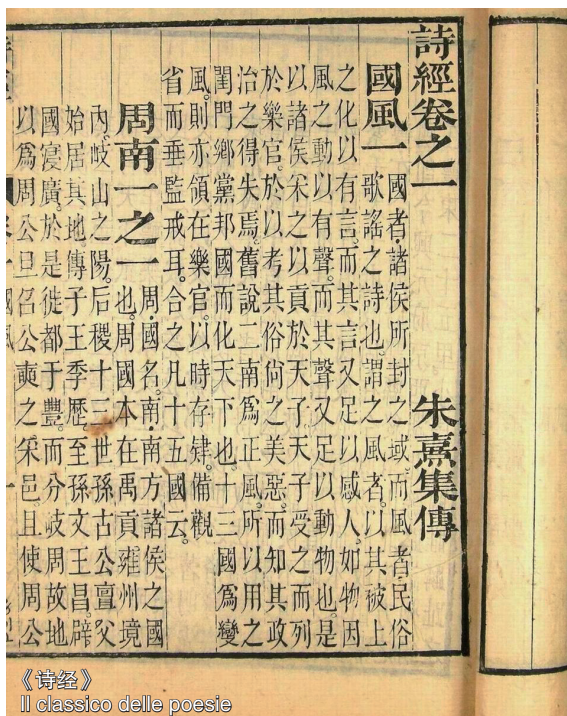 詩經卷之一 朱熹集傳
國風一
國者,諸侯所封之域,而風者,民俗
歌謠之詩也。謂之風者,以其被上
之化以有言。而其言又足以感人。如物因
風之動以有聲。而其聲又足以動物也。是
以諸侯采之以貢於天子。天子受之而列
於樂官。於以考其俗尚之美惡。而知其政
治之得失焉。舊說二南爲正風。所以用之
閨門鄉黨邦國而化天下也。十三國爲變
風。則亦領在樂官。以時存肄。備觀
省而垂監戒耳。合之凡十五國云。
周南一之一
周。國名。南。南方諸侯之國
也。周國本在禹貢雍州境
內。岐山之陽。后稷十三世孫古公亶父
始居其地。傳子王季歷。至孫文王昌。辟
國寖廣。於是徙都于豐。而分岐周故地
以爲周公旦召公奭之采邑。且使周公
《诗经》
Il classico delle poesie